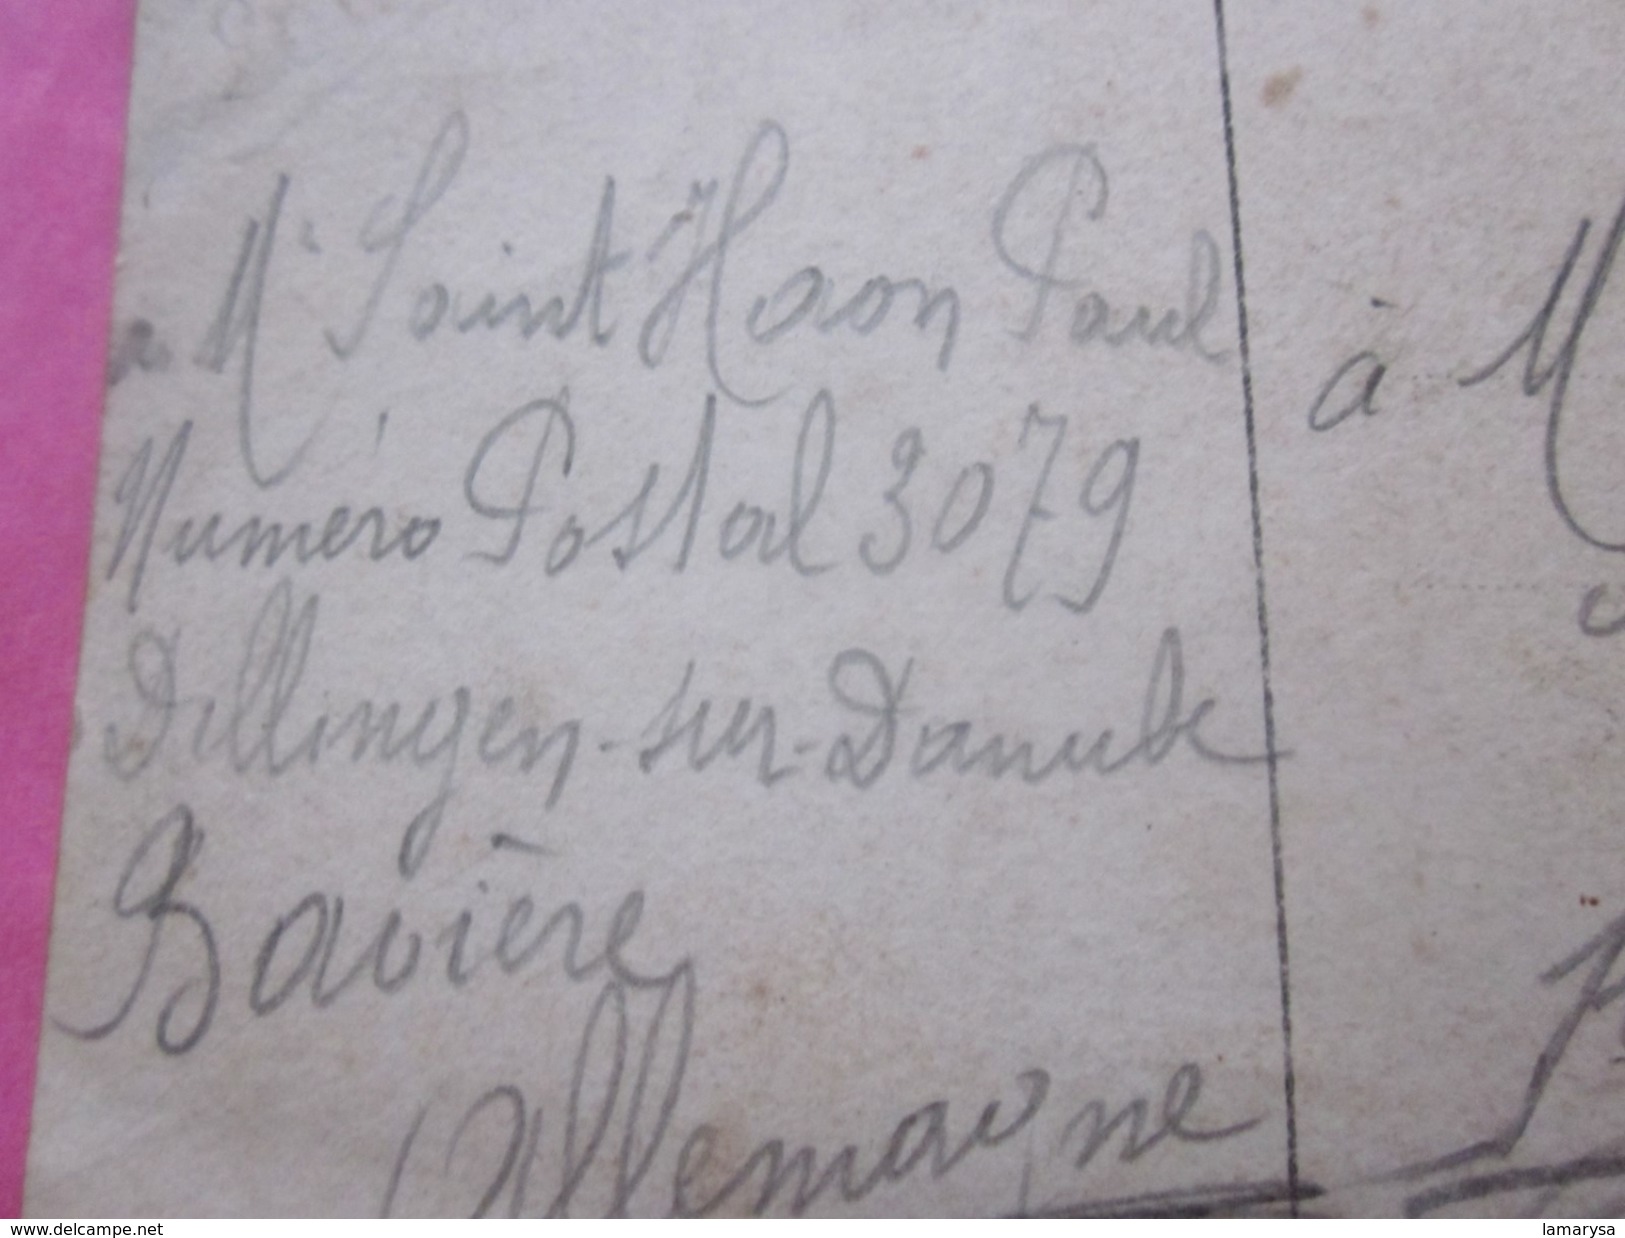 à Mr Saint Haon Paul
Numéro Postal 3079
Dillingen-sur-Danube
Bavière
Allemagne
à M
www.delcampe.net
lamarysa